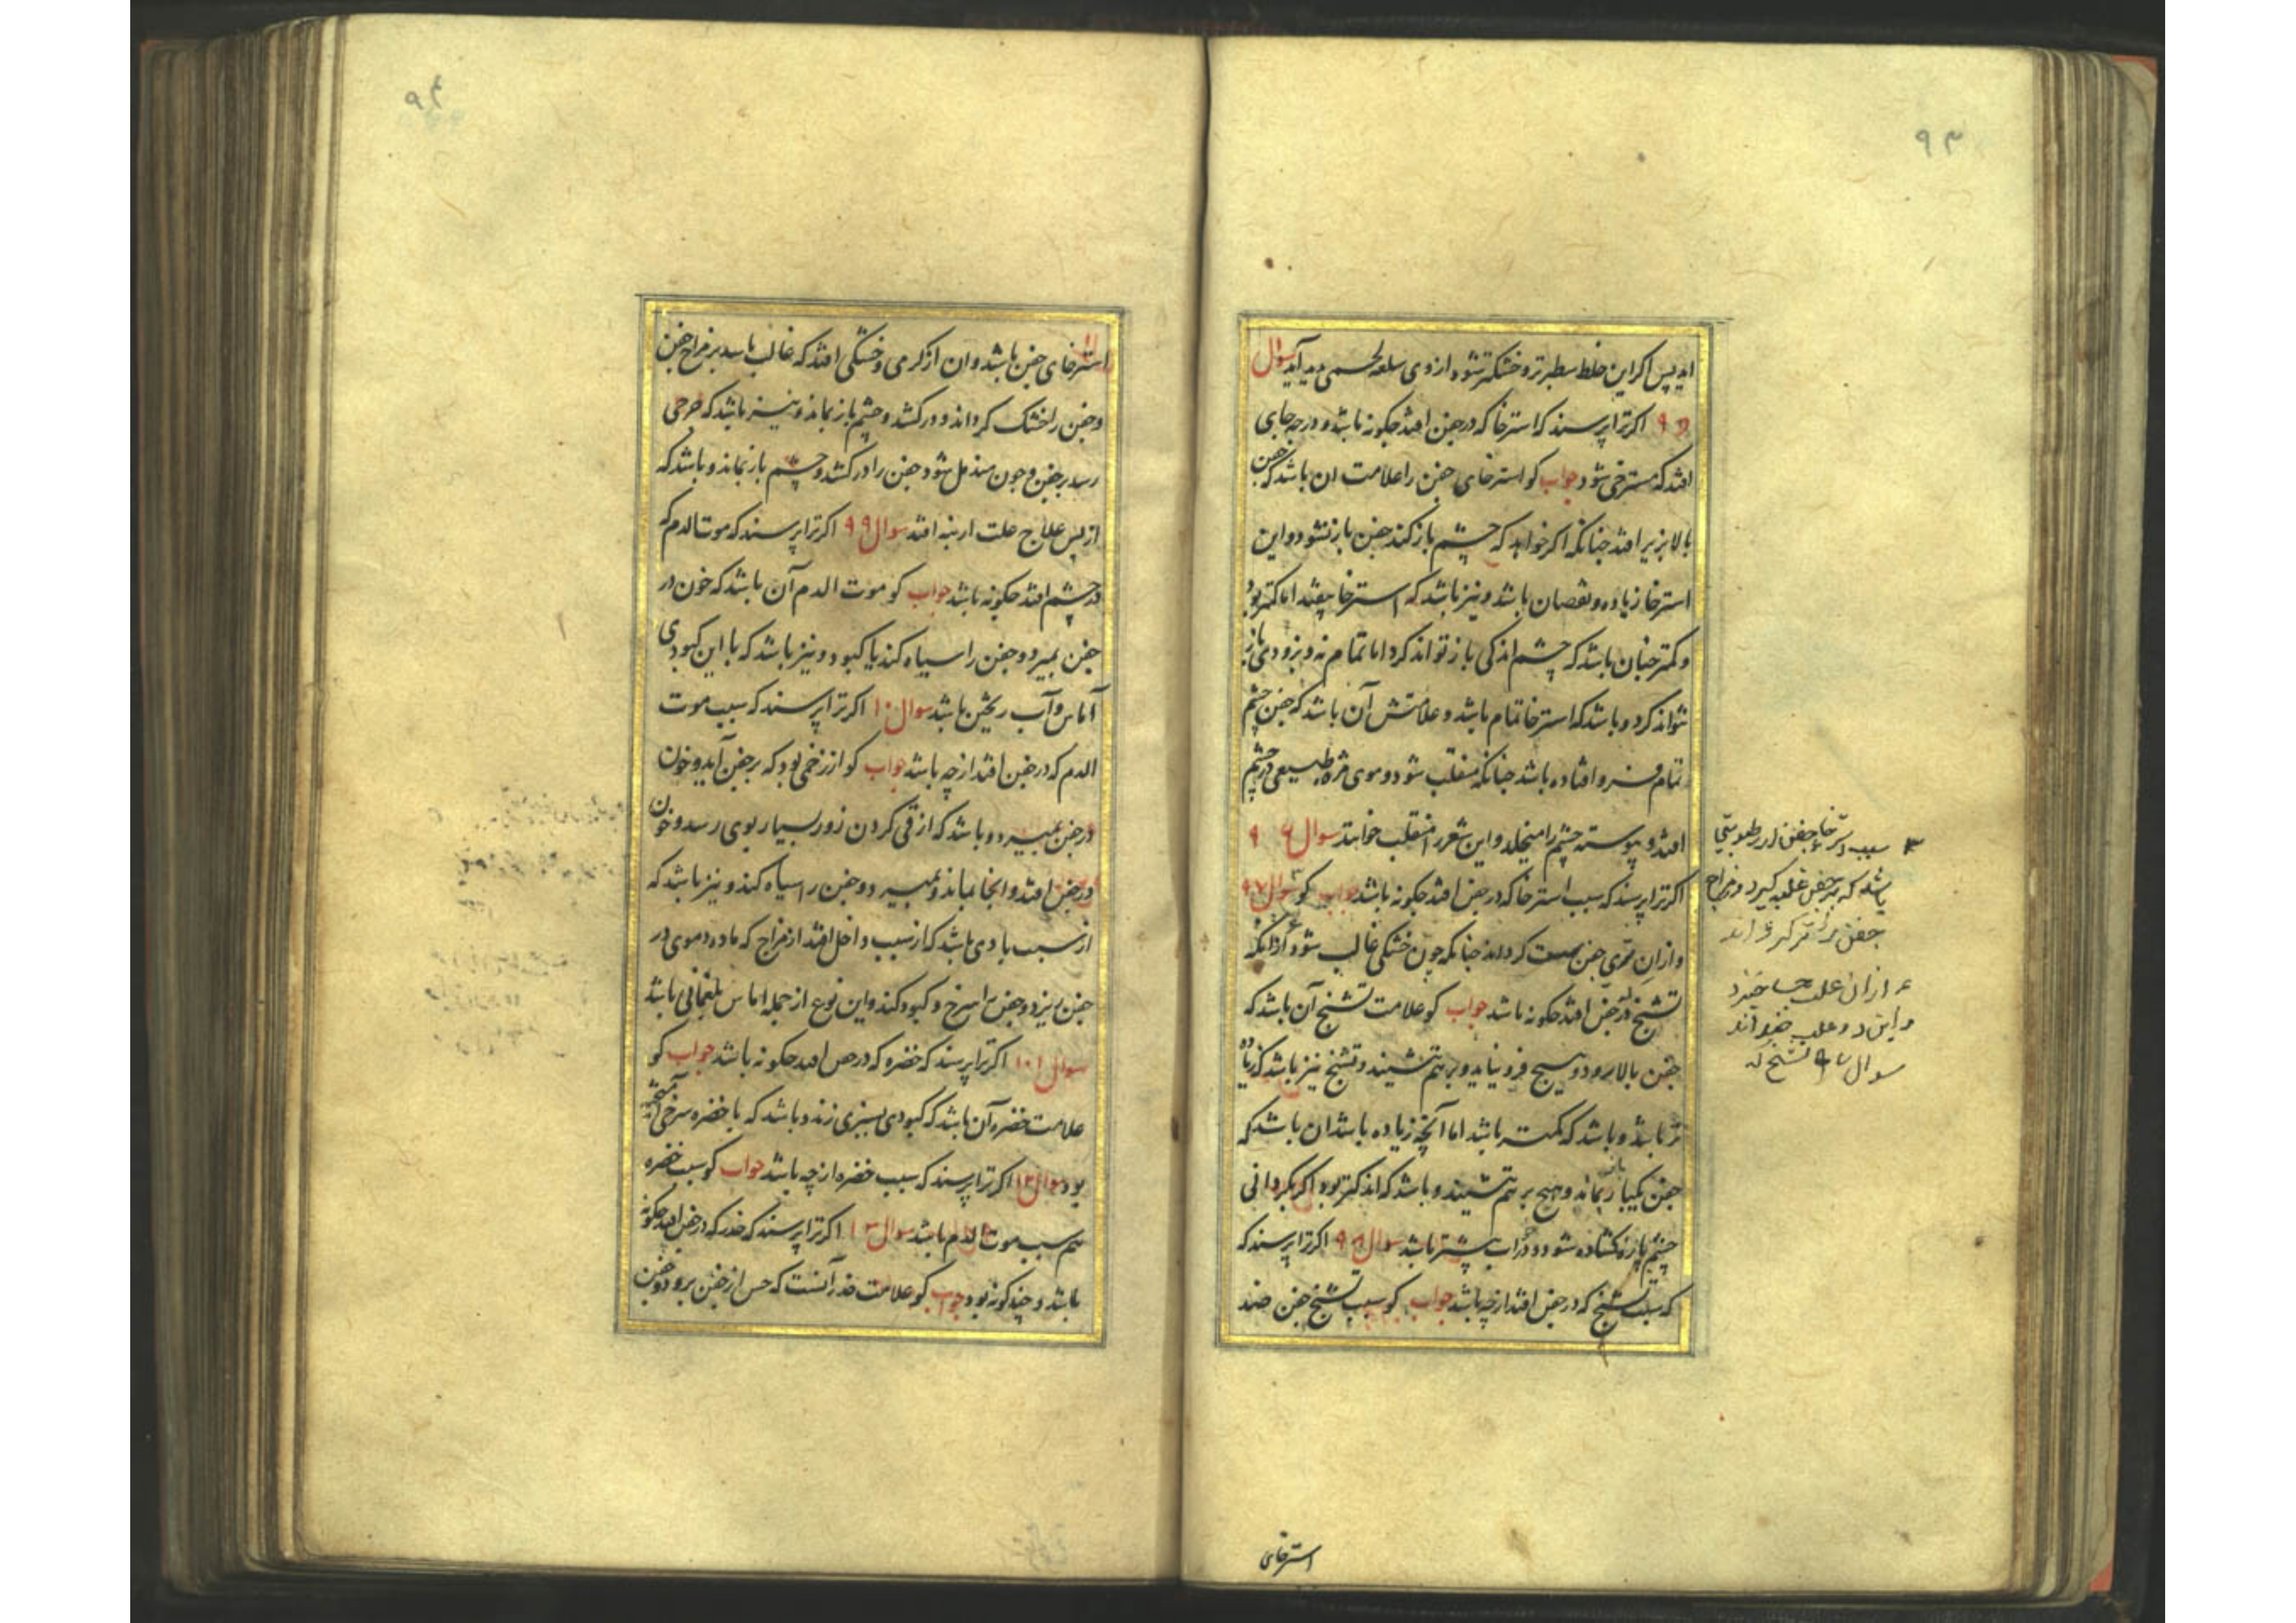 ۹۳
اید پس اکر این خلط سطبرتر و خشکتر شود از وی سلعه لحمی پدید آید سوال
۹۵ اکر ترا پرسند که استرخا که در جفن افتد چکونه باشد و در چه جای
افتد که مسترخی شود جواب کو استرخای جفن را علامت ان باشد که جفن
بالا بزیر افتد چنانکه اکر خواهد که چشم باز کند جفن باز نشود و این
استرخا زیاده و نقصان باشد و نیز باشد که استرخا بیفتد اما کمتر بود
و کمتر چنان باشد که چشم اندکی باز تواند کرد اما تمام نه و بزودی باز
نتواند کرد و باشد که استرخا تمام باشد و علامتش آن باشد که جفن چشم
تمام فرو افتاده باشد چنانکه منقلب شود و موی مژه طبیعی در چشم
افتد و پیوسته چشم را میخلد و این شعر را منقلب خوانند سوال ۹۶
اکر ترا پرسند که سبب استرخا که در جفن افتد چکونه باشد جواب کو سوال ۹۷
و از ان تری جفن سست کرداند چنانکه چون خشکی غالب شود
تشنج که در جفن افتد چکونه باشد جواب کو علامت تشنج آن باشد که
جفن بالا رود و هیچ فرو نیاید و بر هم ننشیند و تشنج نیز باشد که زیاده
تر باشد و باشد که کمتر باشد اما آنچه زیاده باشد ان باشد که
جفن یکباز بماند و هیچ بر هم ننشیند و باشد که اندکتر بود اکر بکردانی
چشم باز کشاده شود و در خواب بیشتر باشد سوال ۹۸ اکر ترا پرسند که
که سبب تشنج که در جفن افتد از چه باشد جواب کو سبب تشنج جفن ضد
سبب استرخاء جفن از رطوبتی
باشد که بر جفن غلبه کیرد و مزاج
جفن را تر کرداند
از ان علت خیزد
و این دو علت خوانند
سوال ۹۷ تشنج که
استرخای
۹۴
استرخای جفن باشد و ان از کرمی و خشکی افتد که غالب باشد بر مزاج جفن
و جفن را خشک کرداند و درکشد و چشم باز بماند و نیز باشد که جرحی
رسد بر جفن و چون مندمل شود جفن را درکشد و چشم باز بماند و باشد که
از پس علاج علت ارنبه افتد سوال ۹۹ اکر ترا پرسند که موت الدم که
در چشم افتد چکونه باشد جواب کو موت الدم آن باشد که خون در
جفن بمیرد و جفن را سیاه کند یا کبود و نیز باشد که با این کبودی
آماس و آب ریختن باشد سوال ۱۰ اکر ترا پرسند که سبب موت
الدم که در جفن افتد از چه باشد جواب کو از زخمی بود که بر جفن آید و خون
در جفن بمیرد و باشد که از قی کردن زور بسیار بوی رسد و خون
در جفن افتد و انجا بماند و بمیرد و جفن را سیاه کند و نیز باشد که
از سبب بادی باشد که از سبب داخل افتد از مزاج که ماده دموی در
جفن ریزد و جفن را سرخ و کبود کند و این نوع از جمله اماس بلغمانی باشد
سوال ۱۰۱ اکر ترا پرسند که خضره که در جفن افتد چکونه باشد جواب کو
علامت خضره آن باشد که کبودی بسبزی زند و باشد که با خضره سرخی آمیخته
بود سوال ۱۲ اکر ترا پرسند که سبب خضره از چه باشد جواب کو سبب خضره
هم سبب موت الدم باشد سوال ۱۳ اکر ترا پرسند که خدر که در جفن افتد چکونه
باشد و چند کونه بود جواب کو علامت خدر آنست که حس از جفن برود و جفن